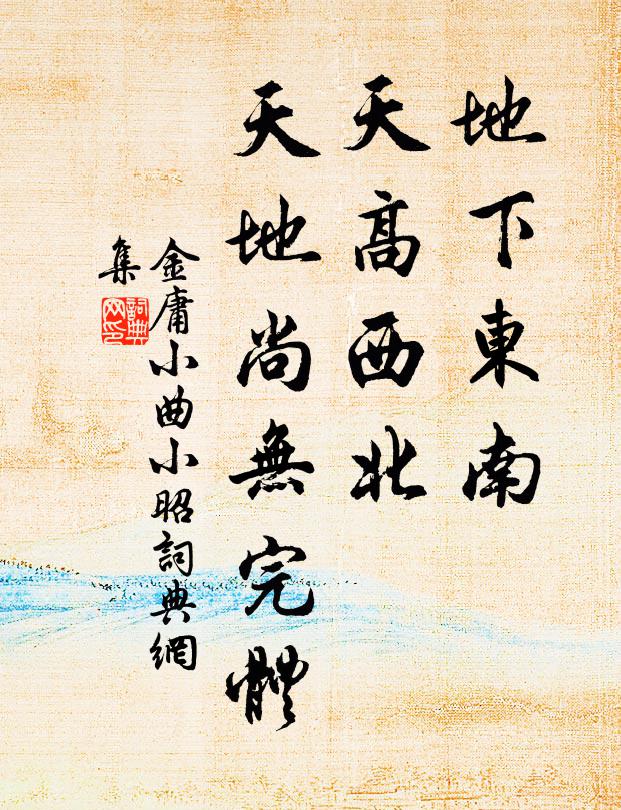 地下東南
天高西北
天地尚無完體
金庸小曲小昭詞典網
集
詞典
网印